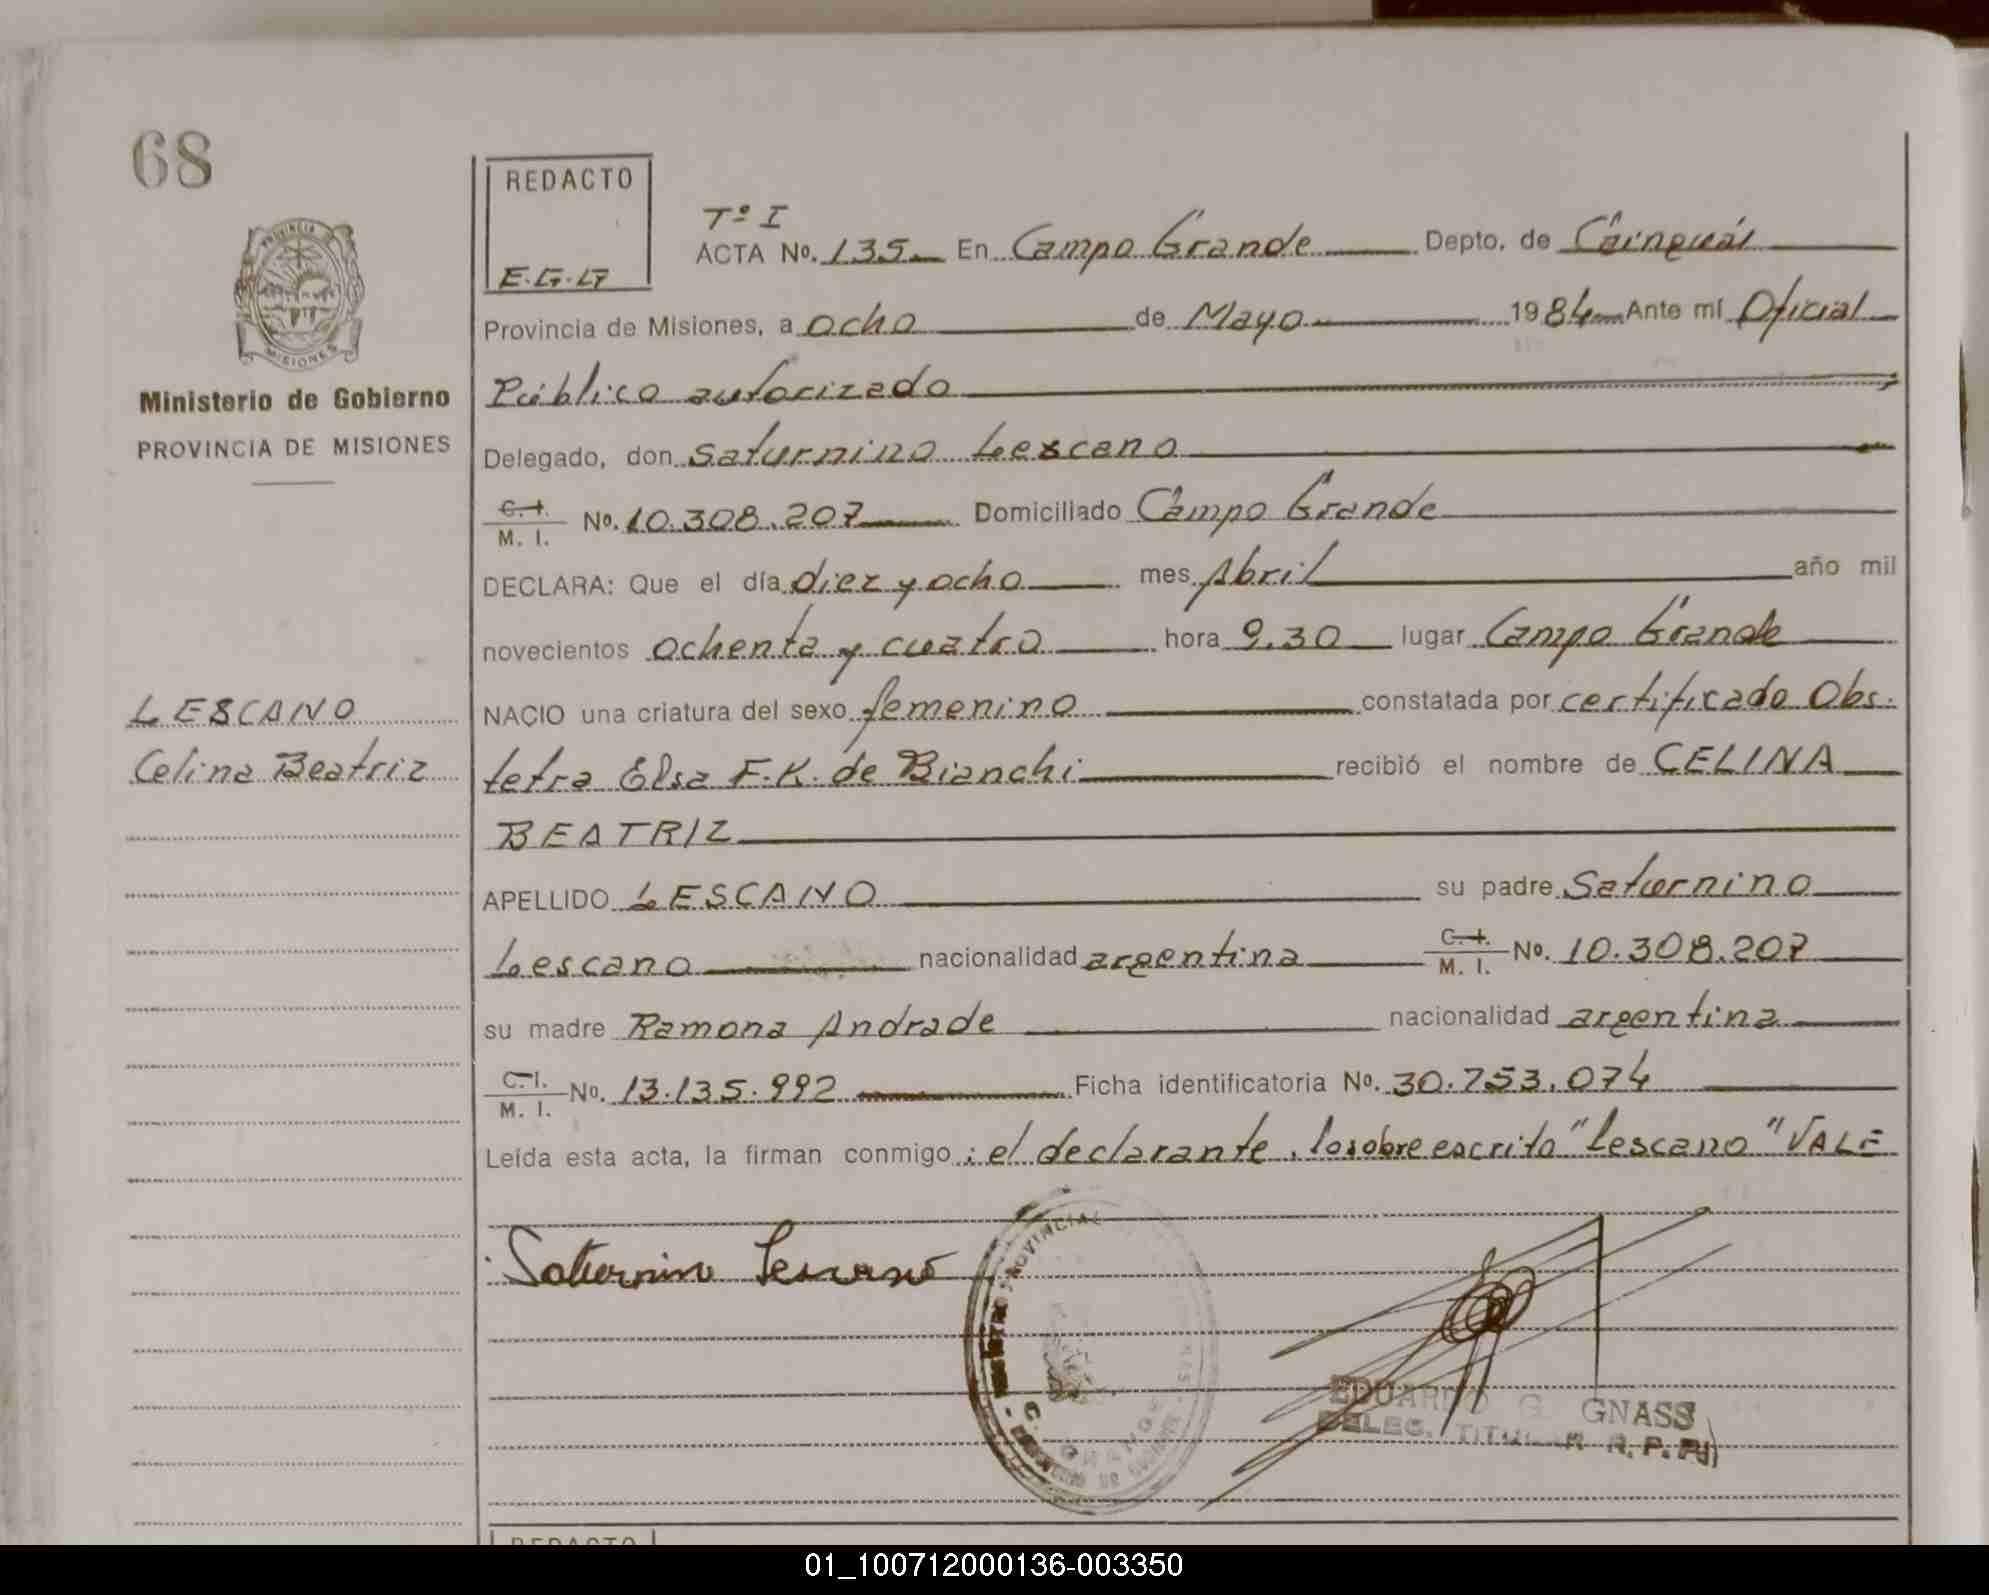 68
REDACTO
E.G.G
PROVINCIA
MISIONES
Ministerio de Gobierno
PROVINCIA DE MISIONES
Tº I
ACTA Nº. 135 En Campo Grande Depto. de Cainguás
Provincia de Misiones, a ocho de Mayo 1984 Ante mí Oficial
Público autorizado
Delegado, don Saturnino Lescano
C.I. M. I. Nº. 10.308.207 Domiciliado Campo Grande
DECLARA: Que el día diez y ocho mes Abril año mil
novecientos ochenta y cuatro hora 9.30 lugar Campo Grande
LESCANO
NACIO una criatura del sexo femenino constatada por certificado Obs.
Celina Beatriz
tetra Elsa F.K. de Bianchi recibió el nombre de CELINA
BEATRIZ
APELLIDO LESCANO su padre Saturnino
Lescano nacionalidad argentina C.I. M. I. Nº. 10.308.207
su madre Ramona Andrade nacionalidad argentina
C.I. M. I. Nº. 13.135.992 Ficha identificatoria Nº. 30.753.074
Leída esta acta, la firman conmigo : el declarante . lo sobre escrito "Lescano" VALE
Saturnino Lescano
PROVINCIAL
EDUARDO G. GNASS
DELEG. TITULAR R. P. P.
REDACTO
01_100712000136-003350